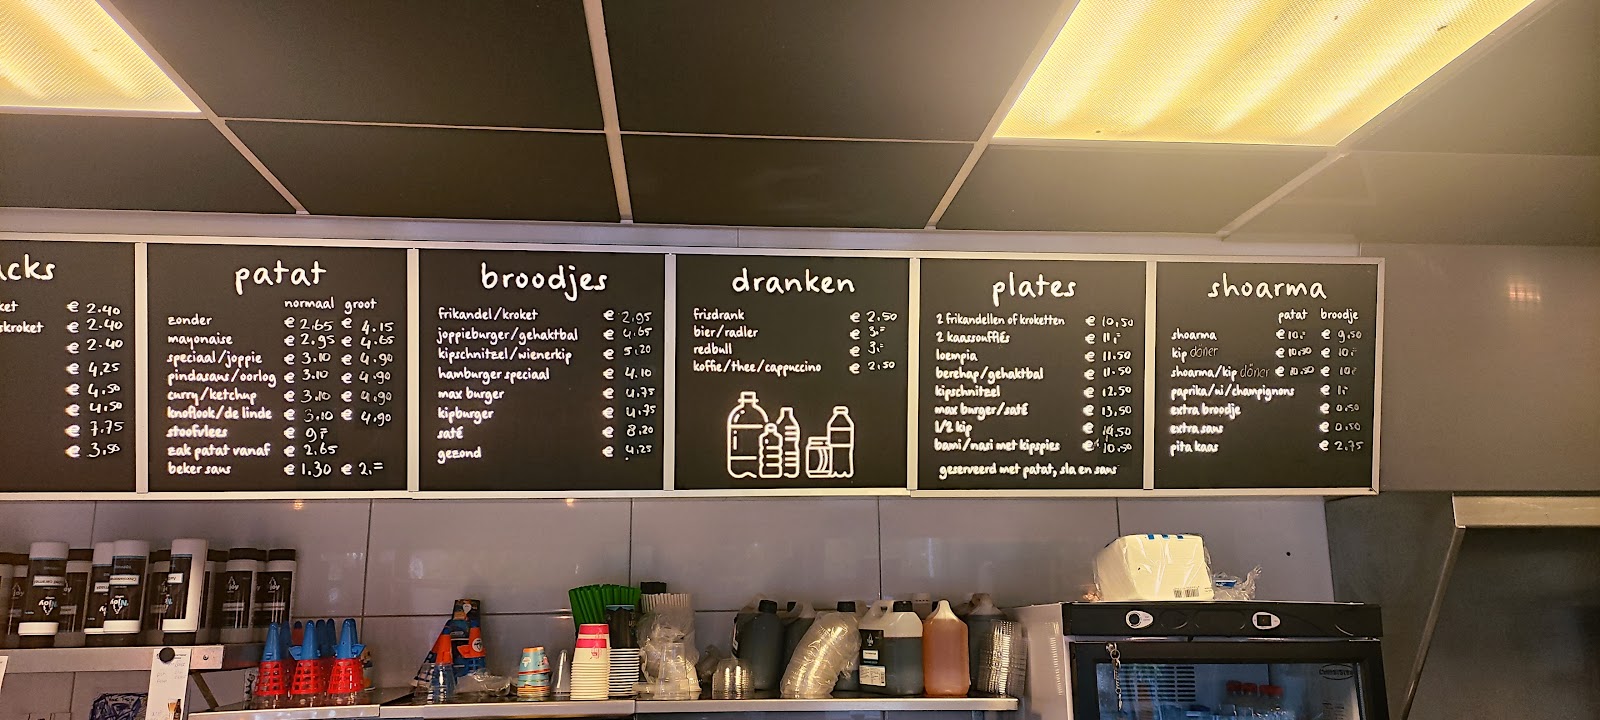 acks
ket € 2.40
skroket € 2.40
€ 2.40
€ 4.25
€ 4.50
€ 4.50
€ 7.75
€ 3.50
patat
normaal groot
zonder € 2.65 € 4.15
mayonaise € 2.95 € 4.65
speciaal/joppie € 3.10 € 4.90
pindasaus/oorlog € 3.10 € 4.90
curry/ketchup € 3.10 € 4.90
knoflook/de linde € 3.10 € 4.90
stoofvlees € 9,=
zak patat vanaf € 2.65
beker saus € 1.30 € 2,=
broodjes
frikandel/kroket € 2,95
joppieburger/gehaktbal € 4.65
kipschnitzel/wienerkip € 5.20
hamburger speciaal € 4.10
max burger € 4.75
kipburger € 4.75
saté € 8.20
gezond € 4.25
dranken
frisdrank € 2.50
bier/radler € 3,=
redbull € 3,=
koffie/thee/cappuccino € 2,50
plates
2 frikandellen of kroketten € 10,50
2 kaassoufflés € 11,=
loempia € 11.50
berehap/gehaktbal € 11.50
kipschnitzel € 12.50
max burger/saté € 13,50
1/2 kip € 14,50
bami/nasi met kipspies € 10,50
geserveerd met patat, sla en saus
shoarma
patat broodje
shoarma € 10,- € 9,50
kip döner € 10,50 € 10,-
shoarma/kip döner € 10.50 € 10,-
paprika/ui/champignons € 1,-
extra broodje € 0.50
extra saus € 0.50
pita kaas € 2.75